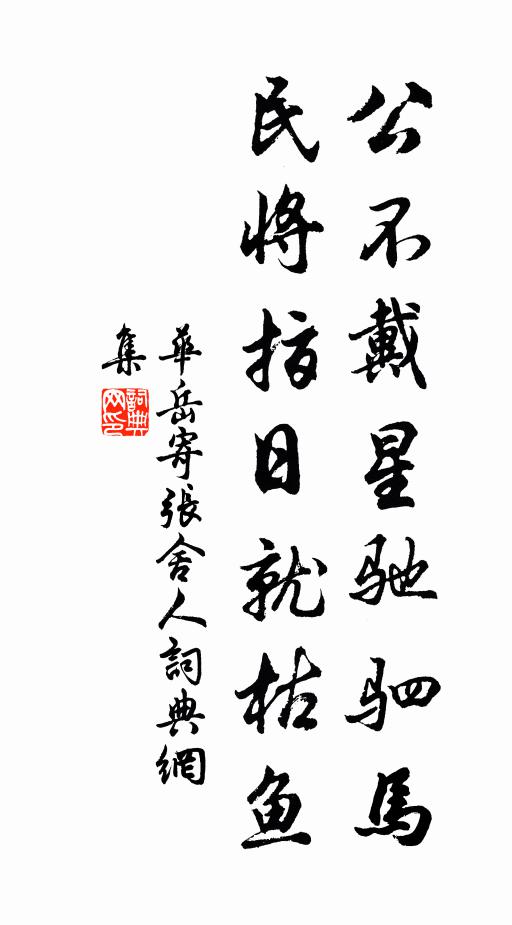 公不戴星驰驷馬
民将指日就枯鱼
華岳寄張舍人詞典網
集
詞典
网印